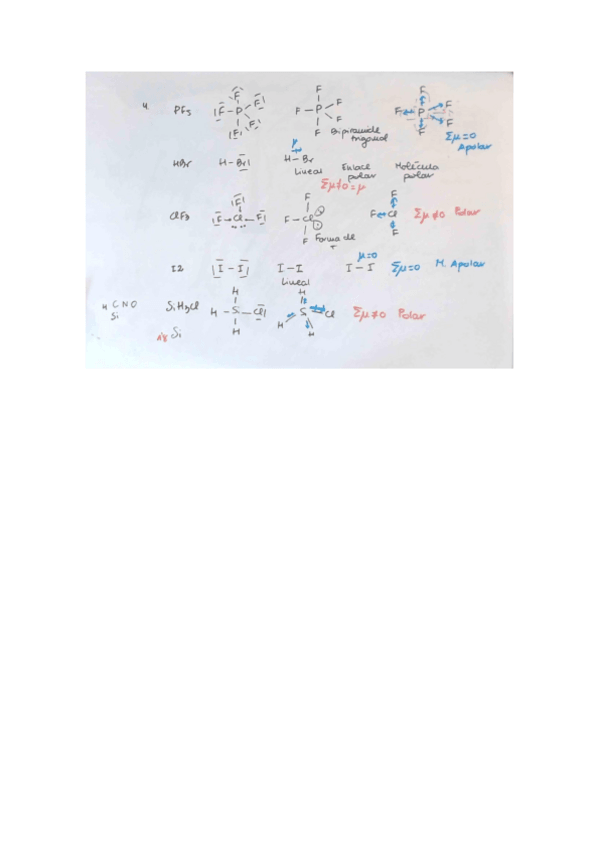 4. PF5 |F-P-F| F F F F-P-F F F F F-P-F F F
Bipirámide trigonal Σμ=0 Apolar
HBr H-Br| μ H-Br Lineal Enlace polar Molécula polar
Σμ≠0=μ
ClF3 |F-Cl-F| F F F-Cl F F F-Cl F Σμ≠0 Polar
Forma de T
I2 |I-I| I-I Lineal μ=0 I-I Σμ=0 M. Apolar
H C N O Si
SiH3Cl H-S-Cl| H H H S Cl H H Σμ≠0 Polar
Si